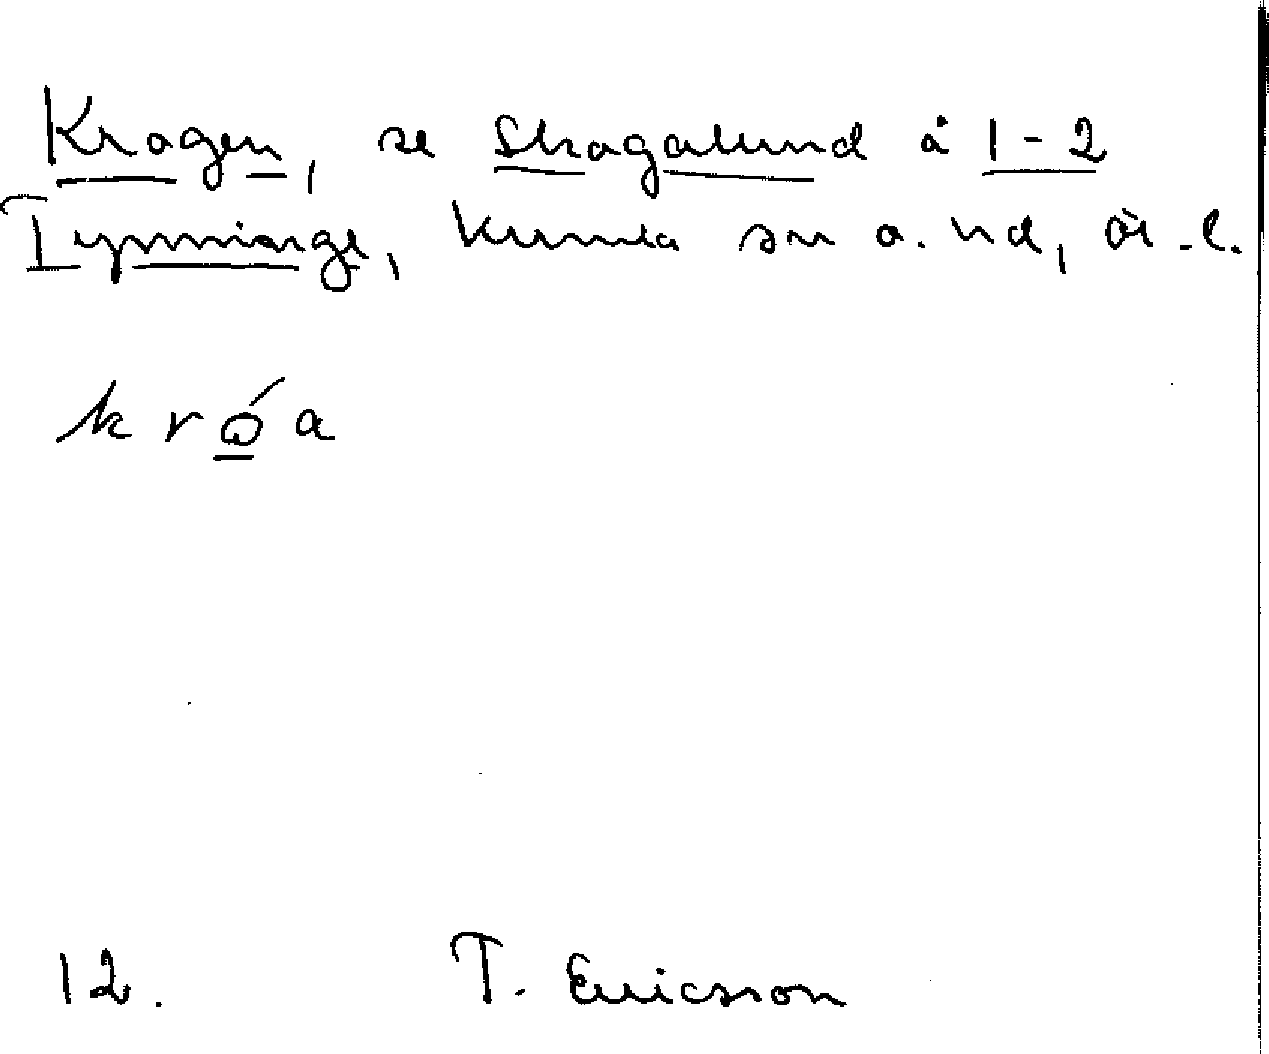 Kragen, se Skagalund å 1-2
Tynninge, Kumla sn o. hd, Ör.l.
k r ó a
12. T. Ericsson